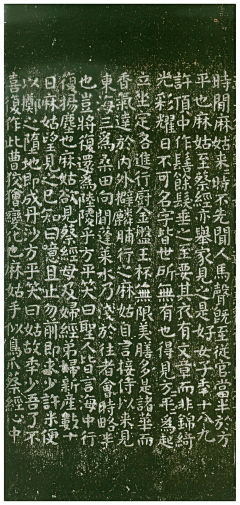 時間麻姑來時不先聞人馬聲既至從官當半於方
平也麻姑至蔡經亦舉家見之是好女子秊十八九
許頂中作髻餘髮垂之至要其衣有文章而非錦綺
光彩耀日不可名字皆世所無有也得見方平方平為起
立坐定各進行廚金盤玉杯無限美膳多是諸華而
香氣達於內外擗麟脯行之麻姑自言接待以來見
東海三為桑田向間蓬萊水乃淺於往者會時略半
也豈將復還為陸陵乎方平笑曰聖人皆言海中行
復揚塵也麻姑欲見蔡經母及婦經弟婦新產數十
日麻姑望見之已知曰噫且止勿前即求少許米便
以擲之墮地即成丹沙方平笑曰姑故秊少吾了不
喜復作此曹狡獪變化也麻姑手似鳥爪蔡經心中